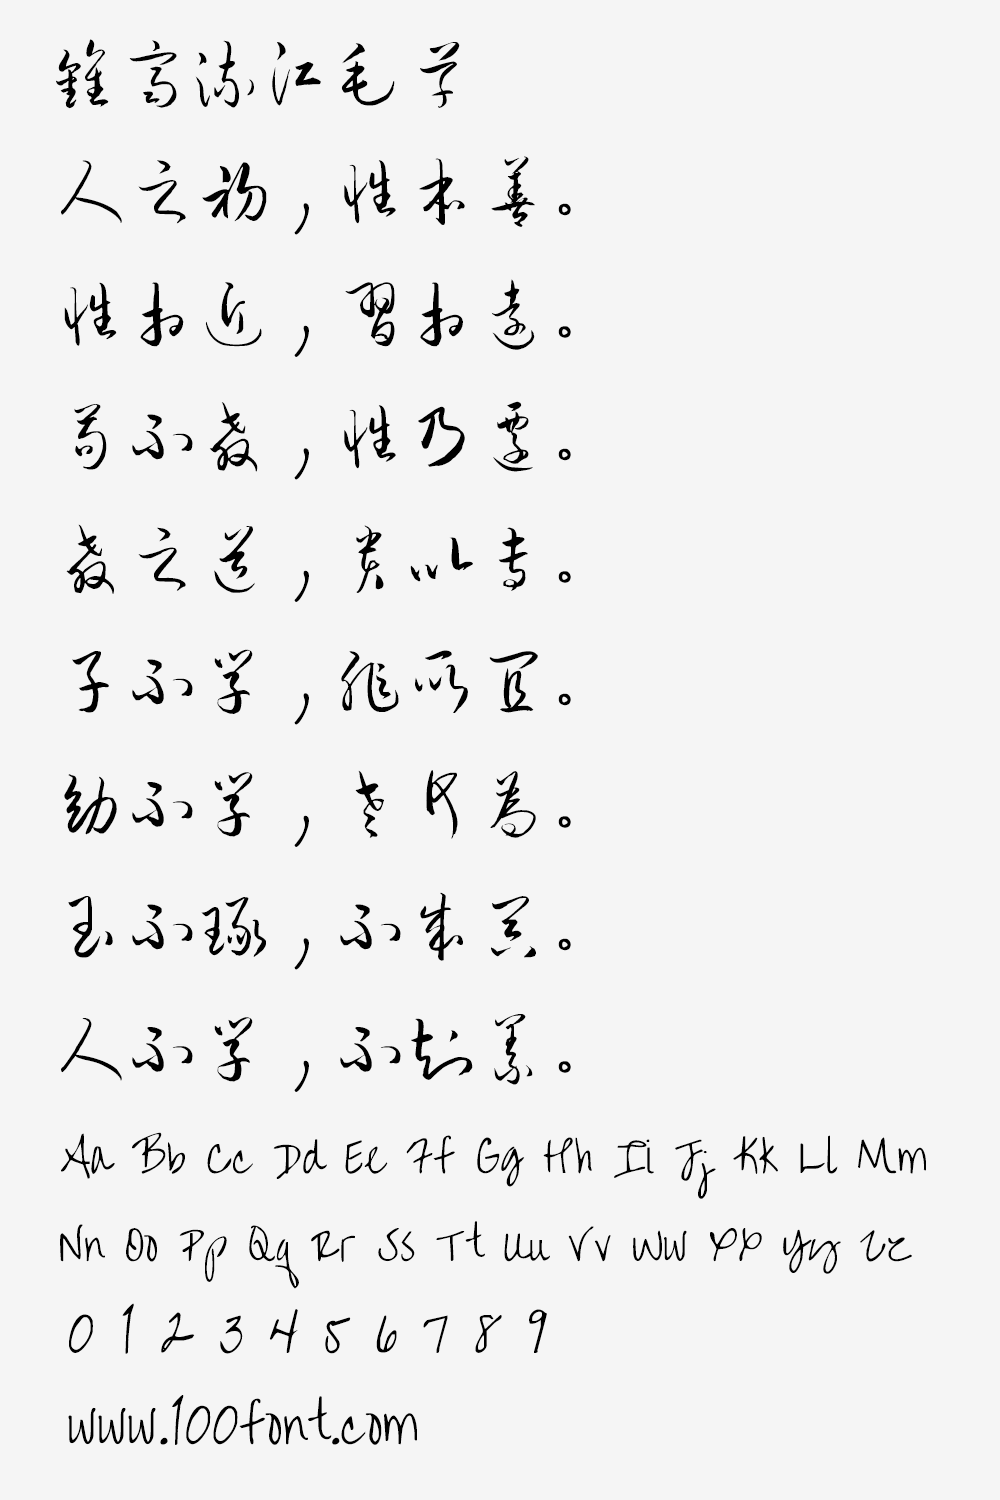 鐘齊流江毛草
人之初，性本善。
性相近，習相遠。
苟不教，性乃遷。
教之道，貴以專。
子不学，非所宜。
幼不学，老何為。
玉不琢，不成器。
人不学，不知義。
Aa Bb Cc Dd Ee Ff Gg Hh Ii Jj Kk Ll Mm
Nn Oo Pp Qq Rr Ss Tt Uu Vv Ww Xx Yy Zz
0 1 2 3 4 5 6 7 8 9
www.100font.com